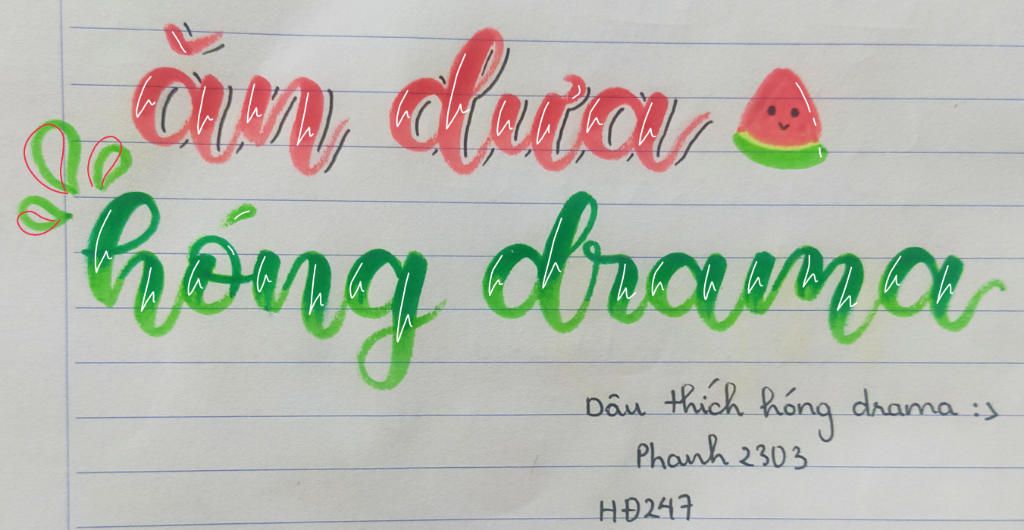 ăn dưa
hóng drama
Dâu thích hóng drama :>
Phanh 2303
HĐ247